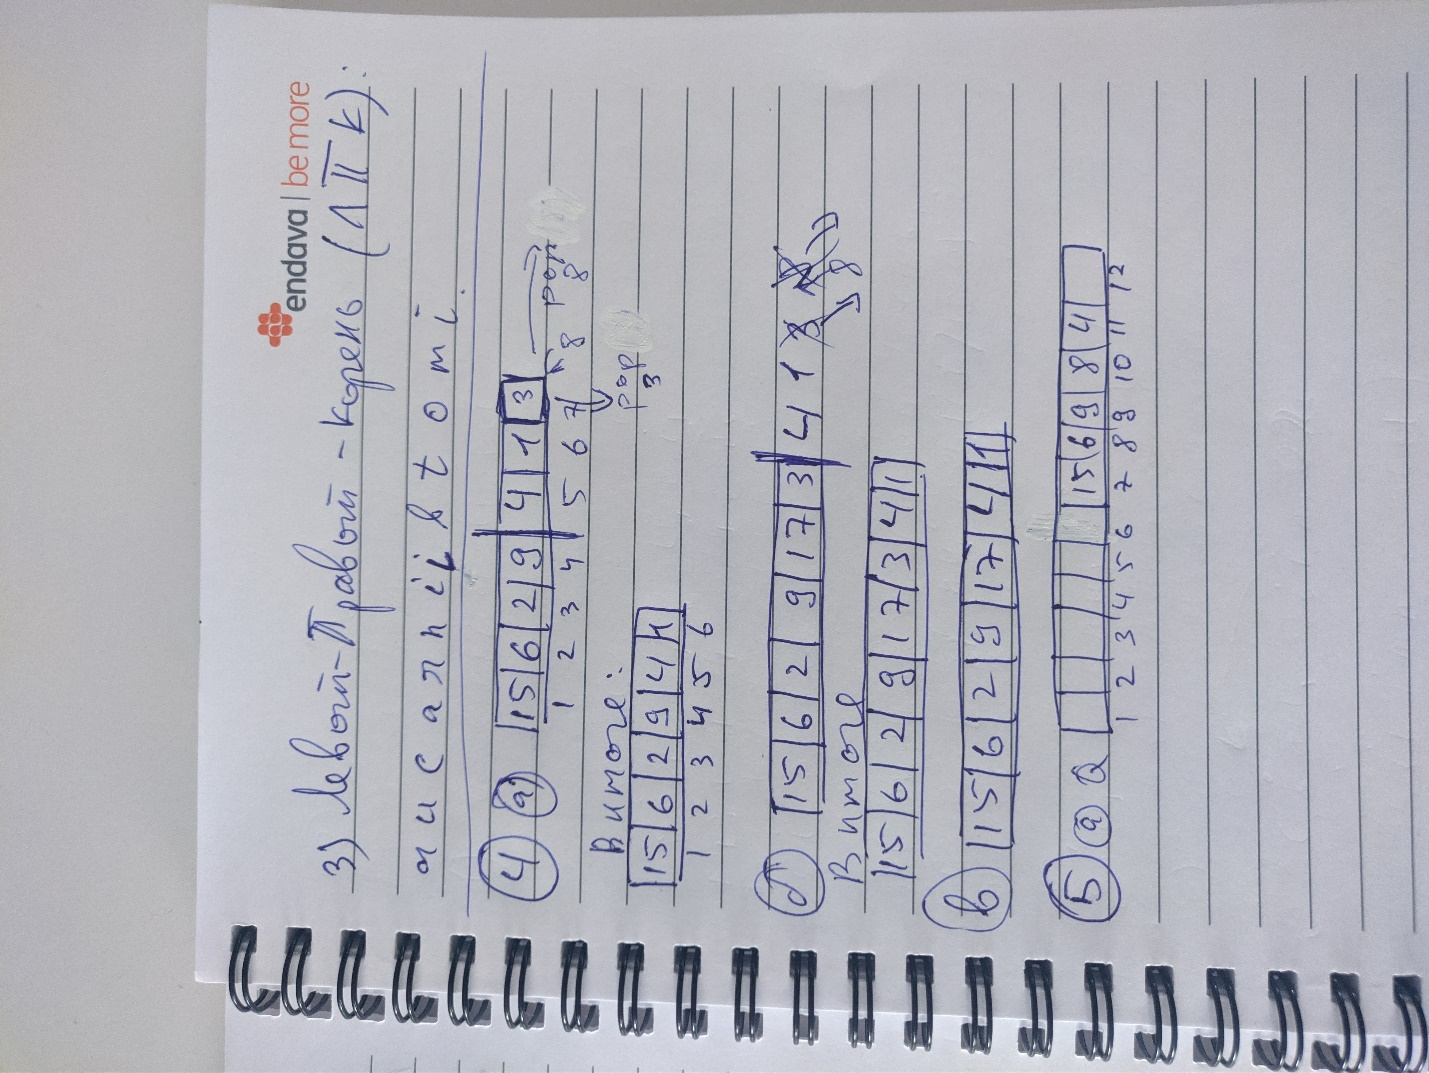 endava | be more
3) Левый-Правый-Корень (ЛПК):
4 а) 15 6 2 9 4 1 3
1 2 3 4 5 6 7 8 pop 8
pop 3
В итоге:
15 6 2 9 4 1
1 2 3 4 5 6
б 15 6 2 9 17 3 4 1
8
В итоге
15 6 2 9 17 3 4 1
в 15 6 2 9 17 4 1
5 а Q 15 6 9 8 4
1 2 3 4 5 6 7 8 9 10 11 12